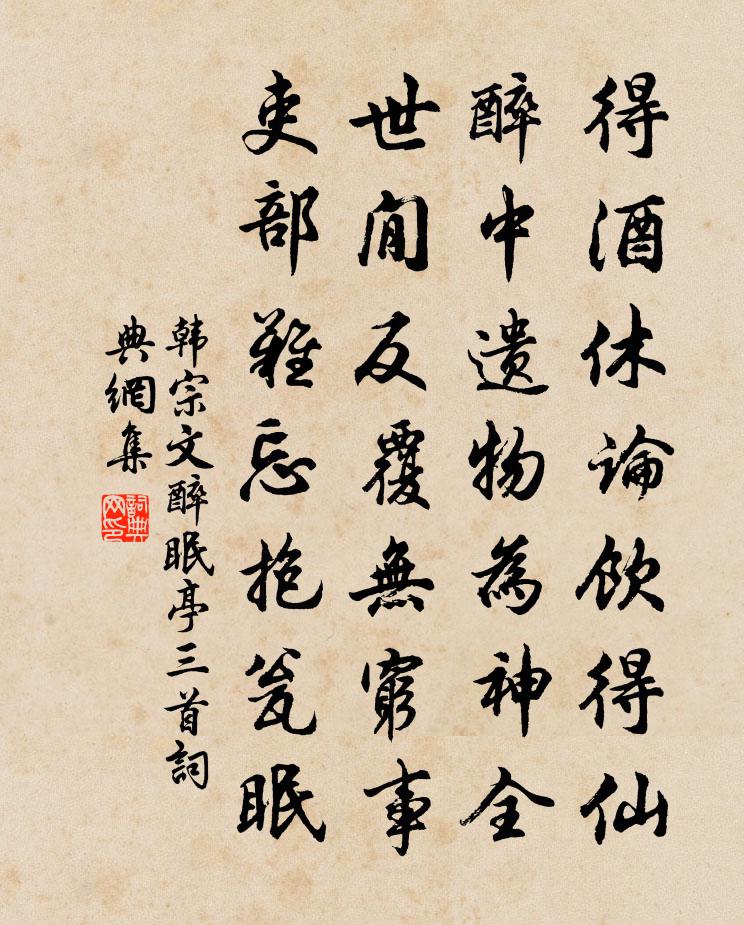 得酒休论饮得仙
醉中遗物為神全
世间反覆無窮事
吏部難忘抱瓮眠
韩宗文醉眠亭三首詞
典網集
詞典网印